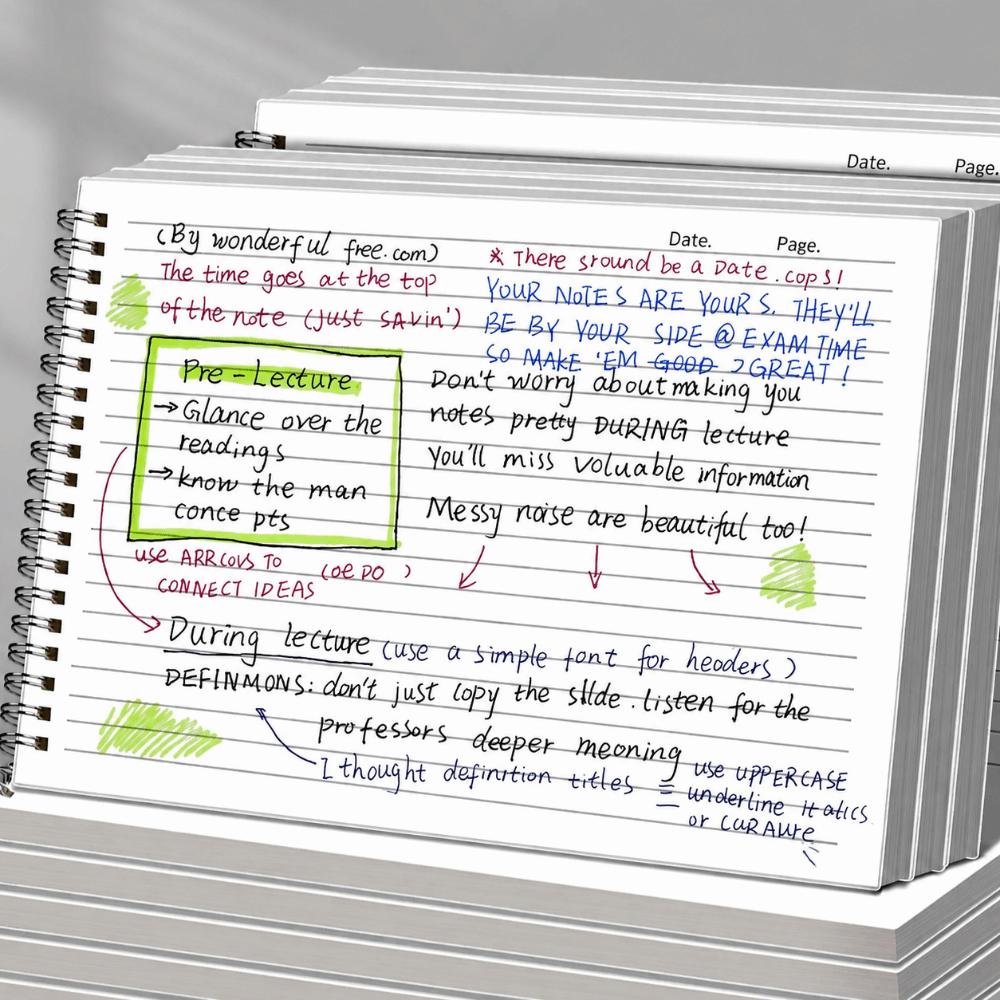 Date.
Page.
Date.
Page.
(By wonderful free.com)
The time goes at the top
of the note (just SAvin')
* There sround be a Date .cops!
YOUR NOTES ARE YOURS. THEY'LL
BE BY YOUR SIDE @ EXAM TIME
SO MAKE 'EM GOOD GREAT!
Pre-Lecture
→ Glance over the
readings
→ know the man
conce pts
Don't worry about making you
notes pretty DURING lecture
You'll miss voluable information
Messy noise are beautiful too!
use ARROVS TO (OEDO)
CONNECT IDEAS
During lecture (use a simple font for heoders)
DEFINMONS: don't just copy the slide. listen for the
professors deeper meoning
I thought definition titles
use UPPERCASE
underline itatics
or CURAWre